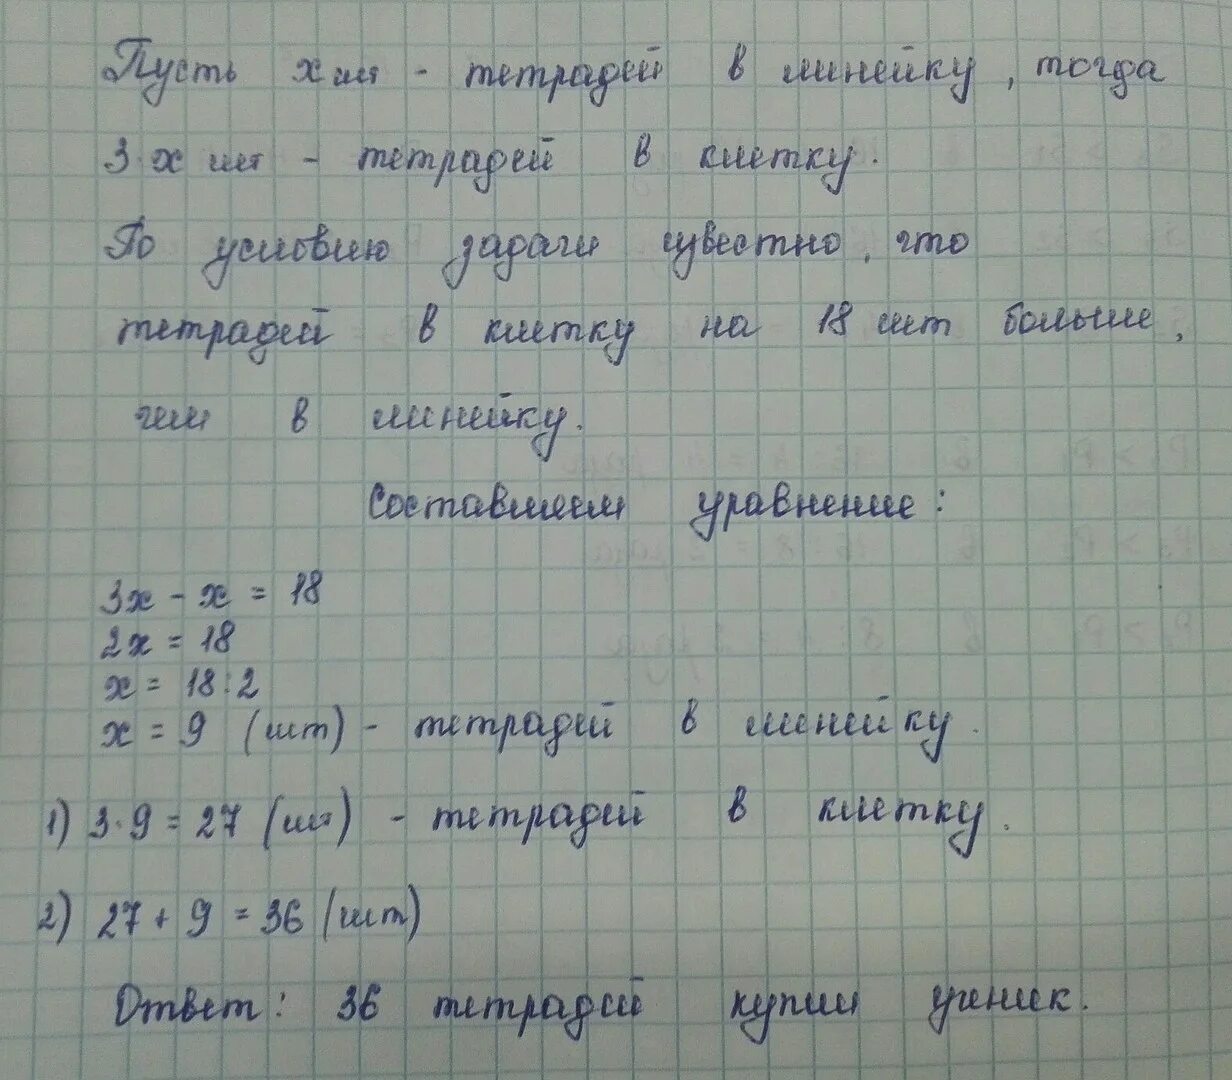 Пусть х шт - тетрадей в линейку, тогда
3·х шт - тетрадей в клетку.
По условию задачи известно, что
тетрадей в клетку на 18 шт больше,
чем в линейку.
Составляем уравнение:
3х - х = 18
2х = 18
х = 18:2
х = 9 (шт) - тетрадей в линейку.
1) 3·9 = 27 (шт) - тетрадей в клетку.
2) 27 + 9 = 36 (шт)
Ответ: 36 тетрадей купил ученик.